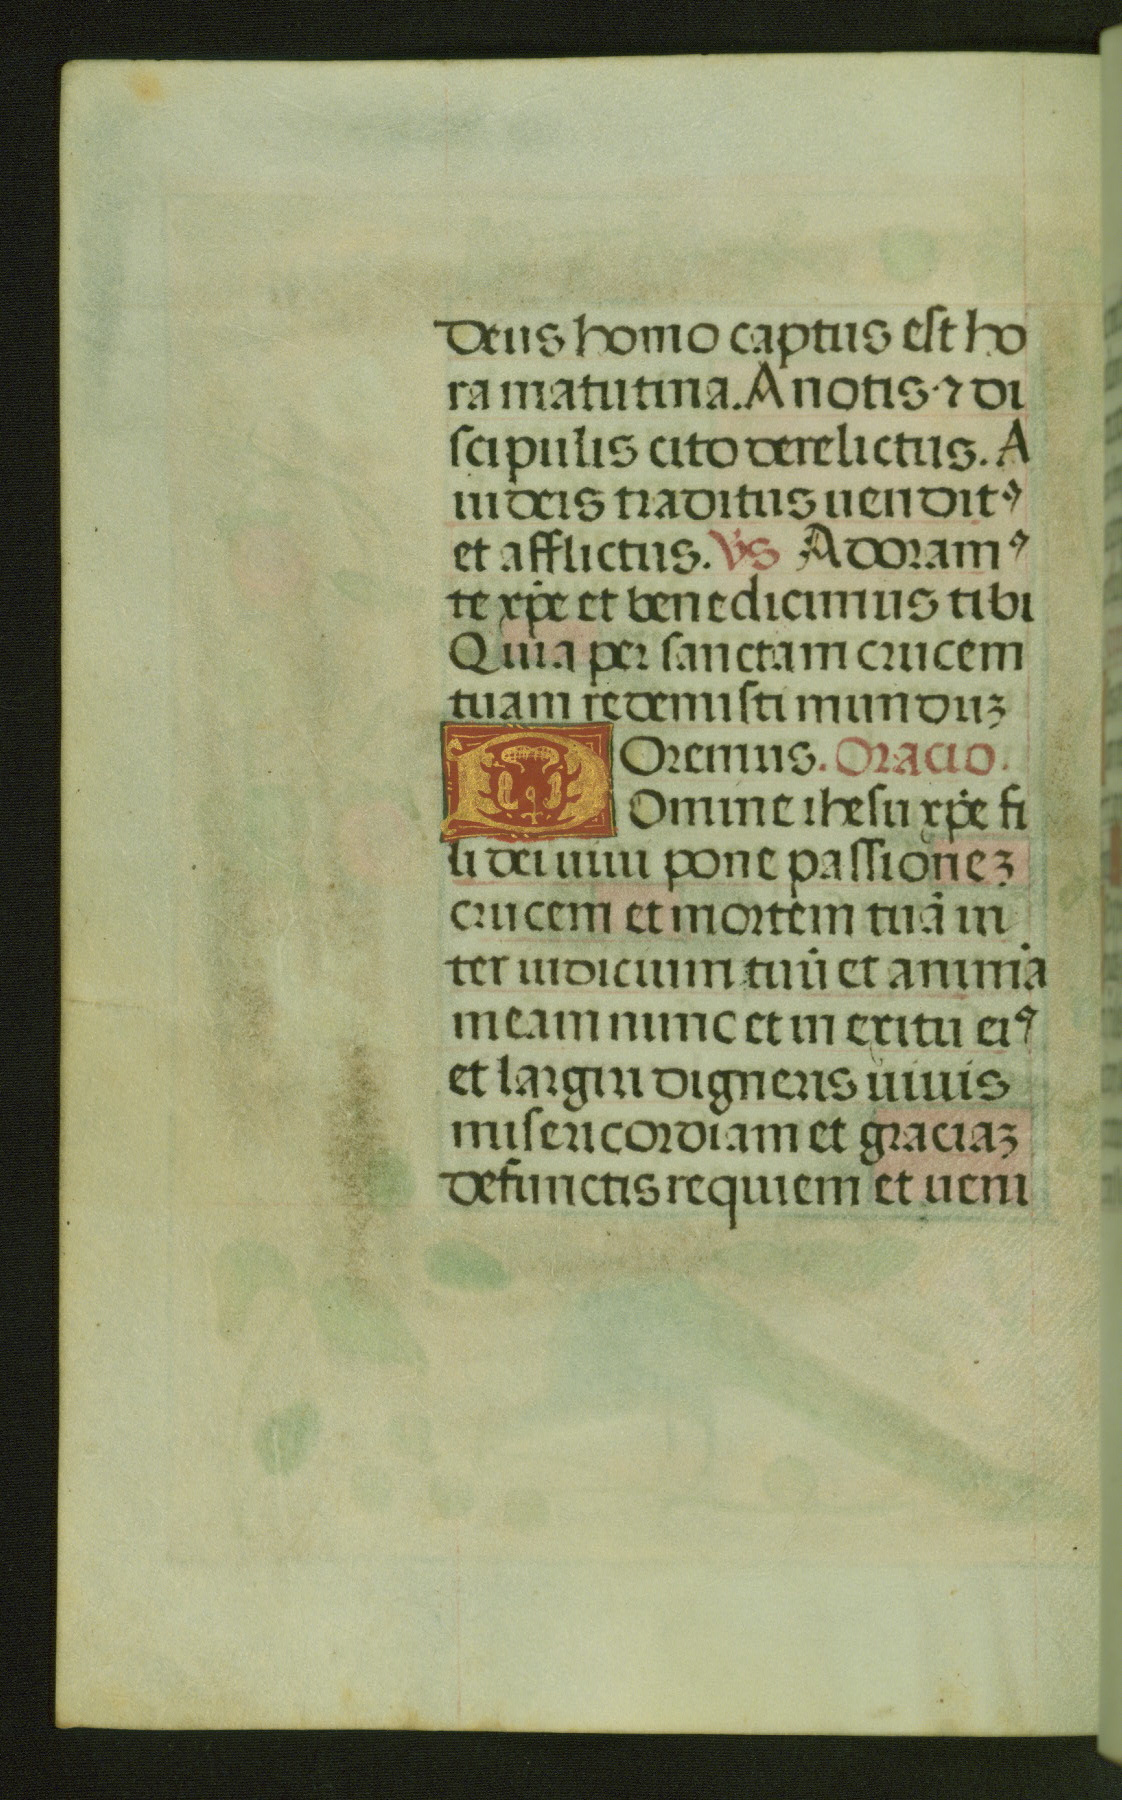 Deus homo captus est ho
ra matutina. A notis ⁊ di
scipulis cito derelictus. A
iudeis traditus uenditꝰ
et afflictus. Vs Adoramꝰ
te xp̄e et benedicimus tibi
Quia per sanctam crucem
tuam redemisti munduꝫ
Oremus. Oracio.
Domine ihesu xp̄e fi
li dei uiui pone passioneꝫ
crucem et mortem tuā in
ter iudicium tuū et animā
meam nunc et in exitu eiꝰ
et largiri digneris uiuis
misericordiam et graciaꝫ
defunctis requiem et ueni